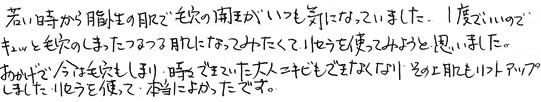 若い時から脂性の肌で毛穴の開きがいつも気になっていました。1度でいいので
キュッと毛穴のしまったつるつる肌になってみたくてリセラを使ってみようと思いました。
おかげで今は毛穴もしまり 時々できていた大人ニキビもできなくなり その上肌もリフトアップ
しました リセラを使って 本当によかったです。